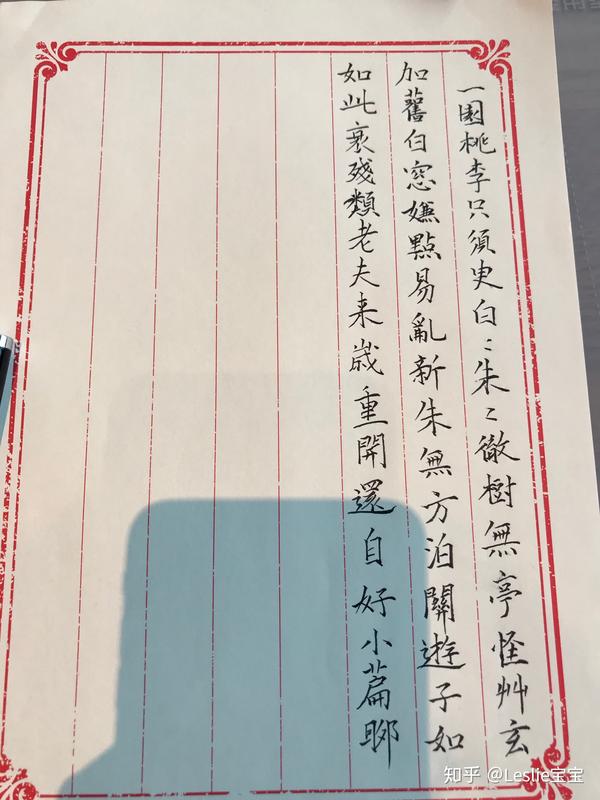 一園桃李只須臾白〻朱〻徹樹無亭怪艸玄
加舊白窓嫌點易亂新朱無方泊關遊子如
如此衰殘類老夫来歳重開還自好小篇聊
知乎 @Leslie宝宝